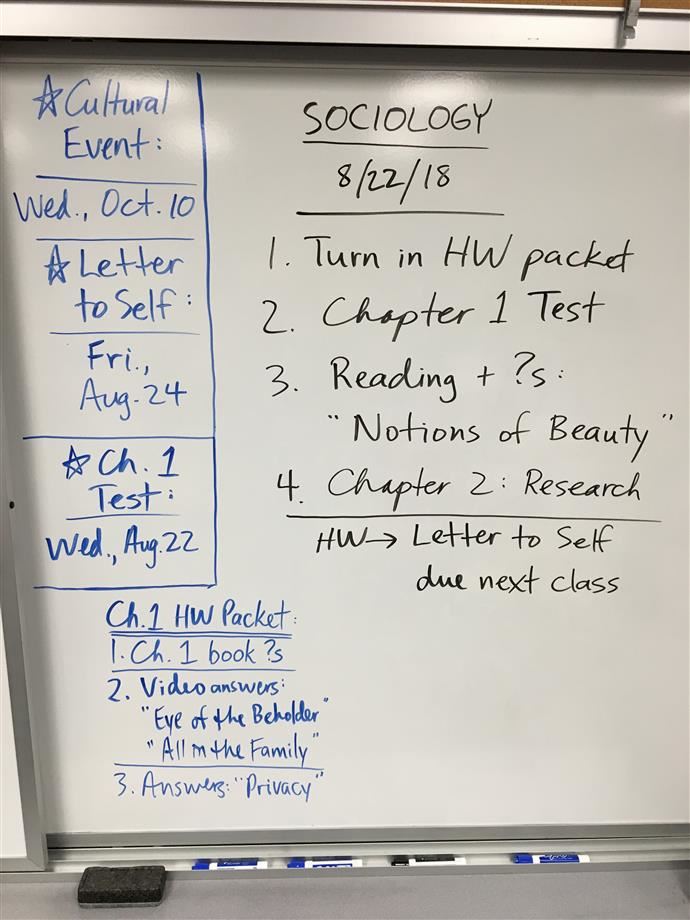 ☆Cultural
Event:
Wed., Oct. 10
☆Letter
to Self:
Fri.,
Aug. 24
☆Ch. 1
Test:
Wed., Aug. 22
Ch. 1 HW Packet:
1. Ch. 1 book ?s
2. Video answers:
"Eye of the Beholder"
"All in the Family"
3. Answers: "Privacy"
SOCIOLOGY
8/22/18
1. Turn in HW packet
2. Chapter 1 Test
3. Reading + ?s:
"Notions of Beauty"
4. Chapter 2: Research
HW→ Letter to Self
due next class